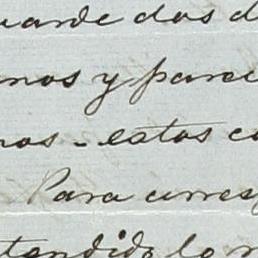 uarde dos d
nos y parec
nos - estos co
Para corres
tendido lo m